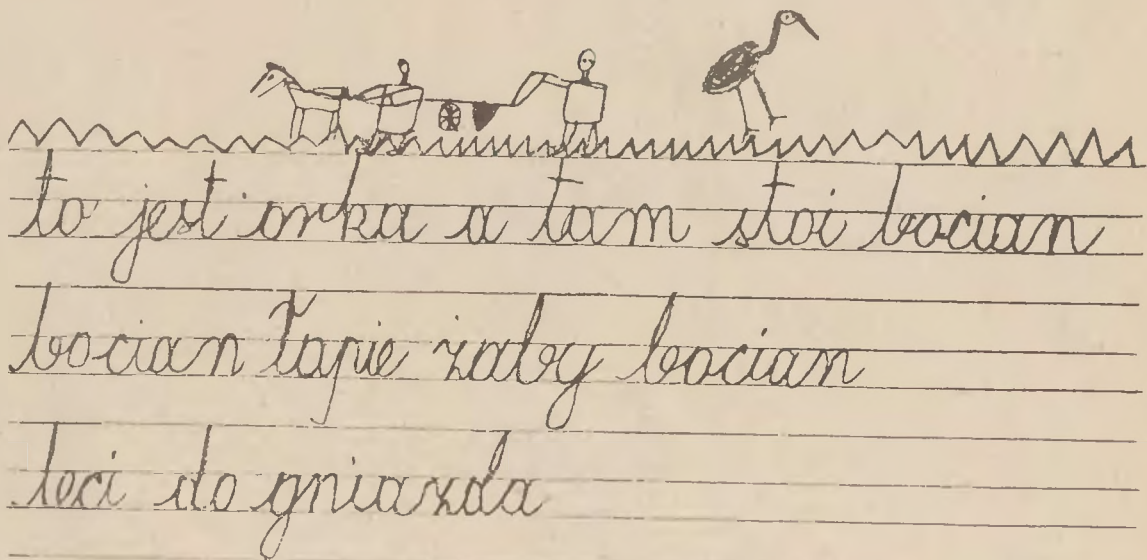 to jest orka a tam stoi bocian
bocian łapie żaby bocian
leci do gniazda